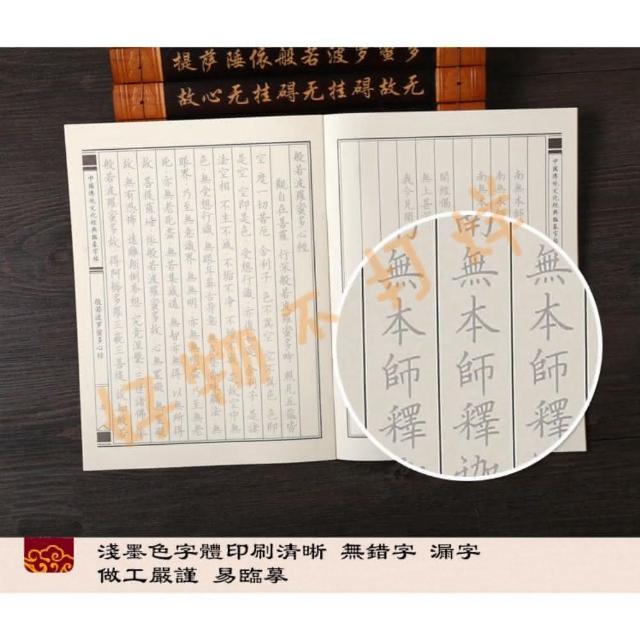 提萨陲依般若波罗蜜多
故心无挂碍无挂碍故无
中國傳統文化經典臨摹字帖
南無本師
南無本師
南無
開經偈
無上甚
我今見聞
南無本師釋迦
無本師釋
無本師釋
般若波羅蜜多心經
觀自在菩薩 行深般若波羅蜜多時 照見五蘊皆
空 度一切苦厄 舍利子 色不異空 空不異色 色即
是空 空即是色 受想行識 亦復如是 舍利子 是諸
法空相 不生不滅 不垢不淨 不增不減 是故空中無
色 無受想行識 無眼耳鼻舌身意 無色聲香味觸法 無
眼界 乃至無意識界 無無明 亦無無明盡 乃至無老
死 亦無老死盡 無苦集滅道 無智亦無得 以無所得
故 菩提薩埵 依般若波羅蜜多故 心無罣礙 無罣礙
故 無有恐怖 遠離顛倒夢想 究竟涅槃 三世諸佛 依
般若波羅蜜多故 得阿耨多羅三藐三菩提 故知般若
中國傳統文化經典臨摹字帖
般若波羅蜜多心經
淺墨色字體印刷清晰 無錯字 漏字
做工嚴謹 易臨摹